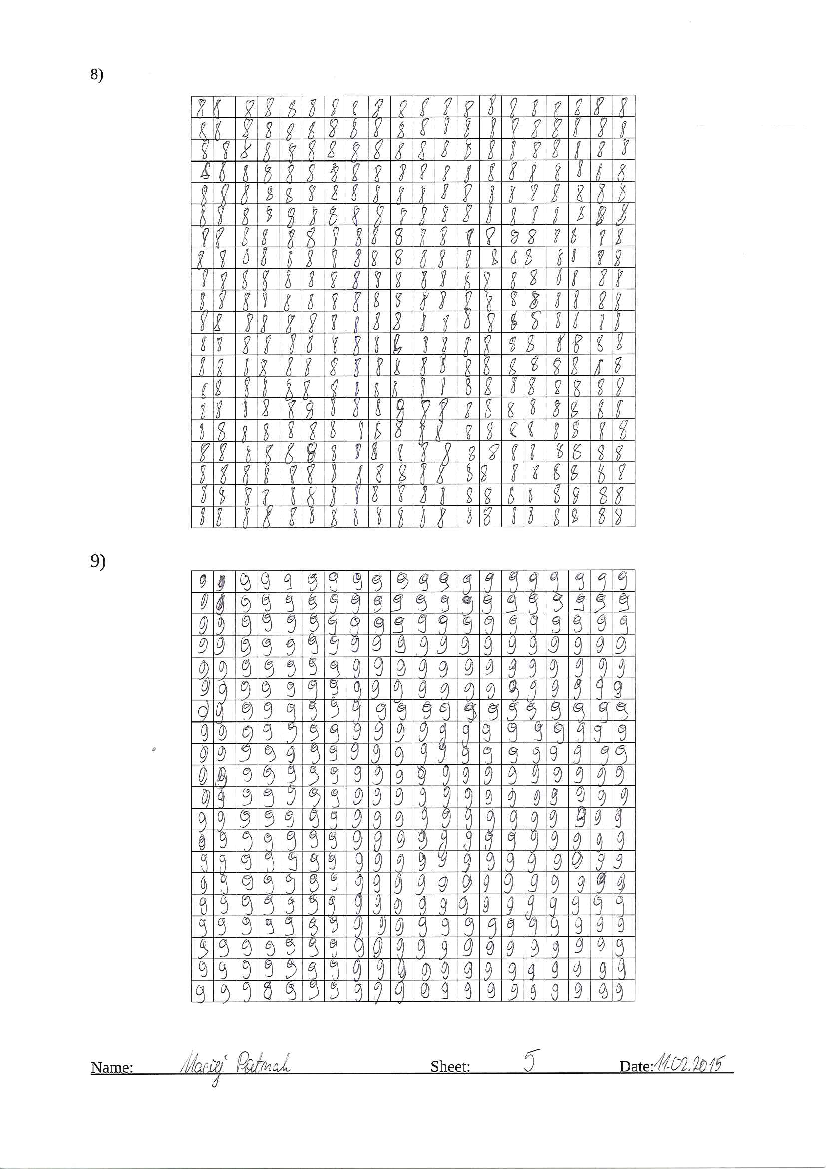 8)
8 8 8 8 8 8 8 8 8 8 8 8 8 8 8 8 8 8 8 8
8 8 8 8 8 8 8 8 8 8 8 8 8 8 8 8 8 8 8 8
8 8 8 8 8 8 8 8 8 8 8 8 8 8 8 8 8 8 8 8
8 8 8 8 8 8 8 8 8 8 8 8 8 8 8 8 8 8 8 8
8 8 8 8 8 8 8 8 8 8 8 8 8 8 8 8 8 8 8 8
8 8 8 8 8 8 8 8 8 8 8 8 8 8 8 8 8 8 8 8
8 8 8 8 8 8 8 8 8 8 8 8 8 8 8 8 8 8 8 8
8 8 8 8 8 8 8 8 8 8 8 8 8 8 8 8 8 8 8 8
8 8 8 8 8 8 8 8 8 8 8 8 8 8 8 8 8 8 8 8
8 8 8 8 8 8 8 8 8 8 8 8 8 8 8 8 8 8 8 8
8 8 8 8 8 8 8 8 8 8 8 8 8 8 8 8 8 8 8 8
8 8 8 8 8 8 8 8 8 8 8 8 8 8 8 8 8 8 8 8
8 8 8 8 8 8 8 8 8 8 8 8 8 8 8 8 8 8 8 8
8 8 8 8 8 8 8 8 8 8 8 8 8 8 8 8 8 8 8 8
8 8 8 8 8 8 8 8 8 8 8 8 8 8 8 8 8 8 8 8
8 8 8 8 8 8 8 8 8 8 8 8 8 8 8 8 8 8 8 8
8 8 8 8 8 8 8 8 8 8 8 8 8 8 8 8 8 8 8 8
8 8 8 8 8 8 8 8 8 8 8 8 8 8 8 8 8 8 8 8
8 8 8 8 8 8 8 8 8 8 8 8 8 8 8 8 8 8 8 8
8 8 8 8 8 8 8 8 8 8 8 8 8 8 8 8 8 8 8 8
9)
9 9 9 9 9 9 9 9 9 9 9 9 9 9 9 9 9 9 9 9
9 9 9 9 9 9 9 9 9 9 9 9 9 9 9 9 9 9 9 9
9 9 9 9 9 9 9 9 9 9 9 9 9 9 9 9 9 9 9 9
9 9 9 9 9 9 9 9 9 9 9 9 9 9 9 9 9 9 9 9
9 9 9 9 9 9 9 9 9 9 9 9 9 9 9 9 9 9 9 9
9 9 9 9 9 9 9 9 9 9 9 9 9 9 9 9 9 9 9 9
9 9 9 9 9 9 9 9 9 9 9 9 9 9 9 9 9 9 9 9
9 9 9 9 9 9 9 9 9 9 9 9 9 9 9 9 9 9 9 9
9 9 9 9 9 9 9 9 9 9 9 9 9 9 9 9 9 9 9 9
9 9 9 9 9 9 9 9 9 9 9 9 9 9 9 9 9 9 9 9
9 9 9 9 9 9 9 9 9 9 9 9 9 9 9 9 9 9 9 9
9 9 9 9 9 9 9 9 9 9 9 9 9 9 9 9 9 9 9 9
9 9 9 9 9 9 9 9 9 9 9 9 9 9 9 9 9 9 9 9
9 9 9 9 9 9 9 9 9 9 9 9 9 9 9 9 9 9 9 9
9 9 9 9 9 9 9 9 9 9 9 9 9 9 9 9 9 9 9 9
9 9 9 9 9 9 9 9 9 9 9 9 9 9 9 9 9 9 9 9
9 9 9 9 9 9 9 9 9 9 9 9 9 9 9 9 9 9 9 9
9 9 9 9 9 9 9 9 9 9 9 9 9 9 9 9 9 9 9 9
9 9 9 9 9 9 9 9 9 9 9 9 9 9 9 9 9 9 9 9
9 9 9 9 9 9 9 9 9 9 9 9 9 9 9 9 9 9 9 9
Name: Maciej Sheet: 5 Date: 11.02.2015